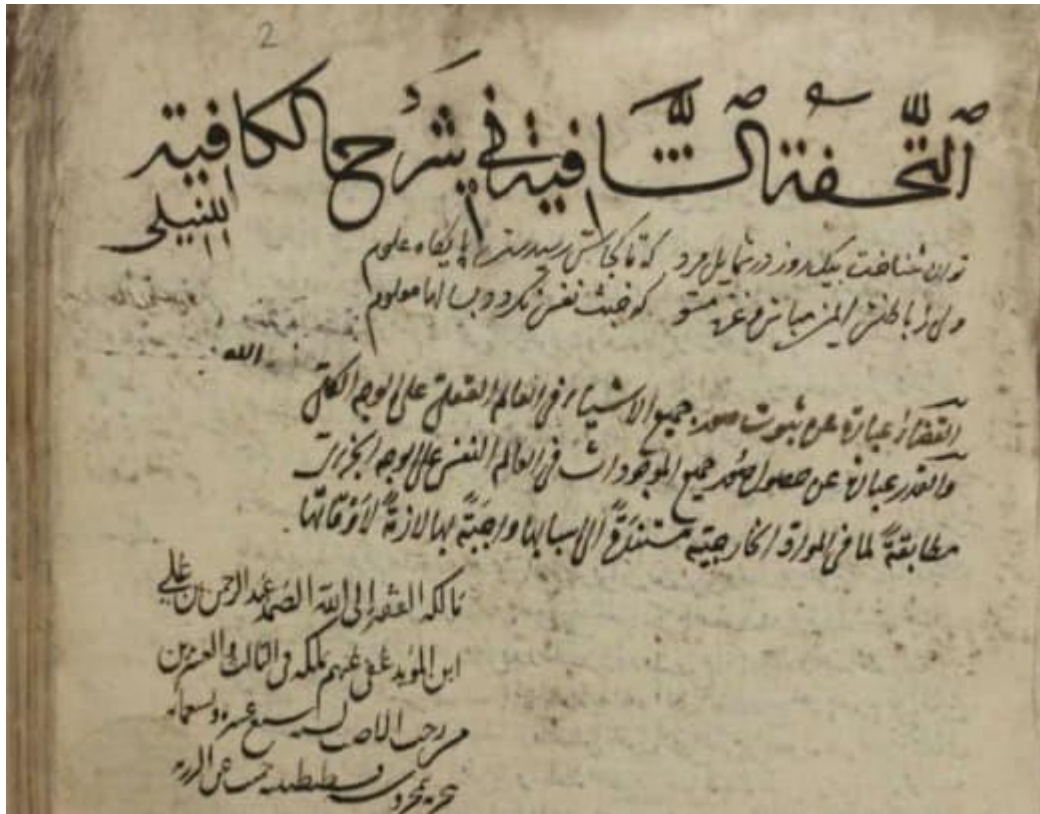 2
التحفة الشافية في شرح الكافية
للنيلي
توان شناخت بيك روز در شمايل مرد که تا کجاش رسيدست پايکاه علوم
ولی ز باطنش ايمن مباش و غره مشو که خبث نفس نکردد بسالها معلوم
الله
القضاء عبارة عن ثبوت صور جميع الاشياء في العالم العقلي على الوجه الكلي
والقدر عبارة عن حصول صور جميع الموجودات في العالم النفسي على الوجه الجزئي
مطابقة لما في المواد الخارجية مستندة الى اسبابها واجبة بها لازمة لاوقاتها
مالكه الفقير الى الله الصمد عبد الرحمن بن علي
ابن المؤيد عفي عنهم تملكه في الثالث والعشرين
من رجب الاصب لسنة سبع عشرة وتسعمائة
قسطنطينية